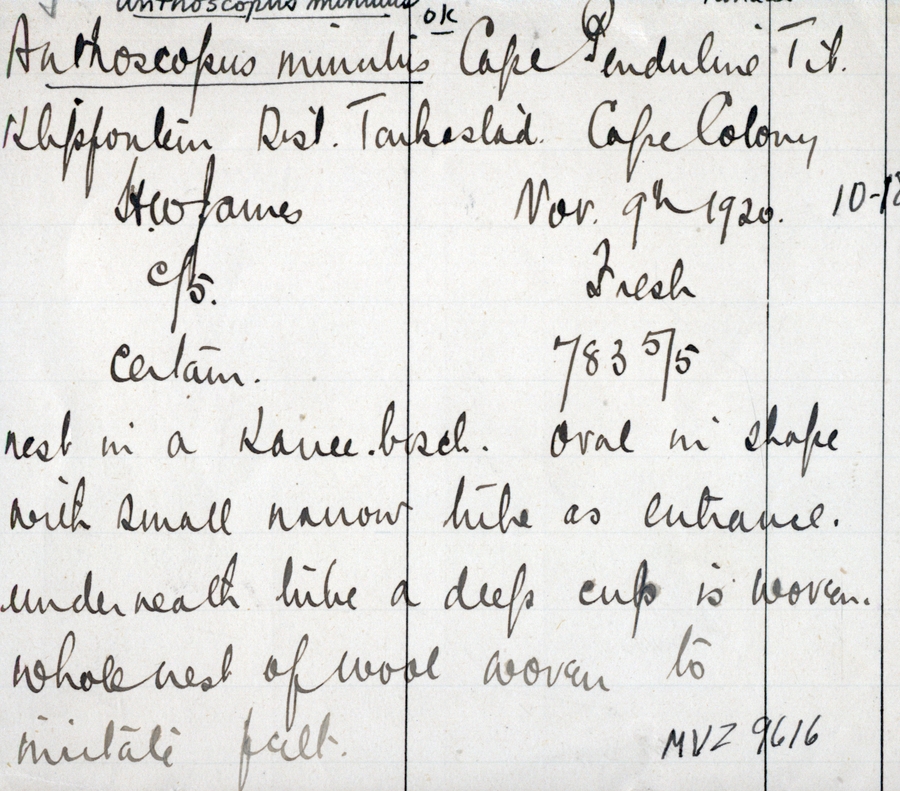 Anthoscopus minutus
ok
Anthoscopus minutus Cape Penduline Tit.
Klipfontein Dist. Tarkastad. Cape Colony
H.W. James Nov. 9th 1920. 10-18
c/5. Fresh
Certain. 783 5/5
nest in a Karree.bosch. Oval in shape
with small narrow tube as entrance.
underneath tube a deep cup is woven.
whole nest of wool woven to
imitate felt. MVZ 9616